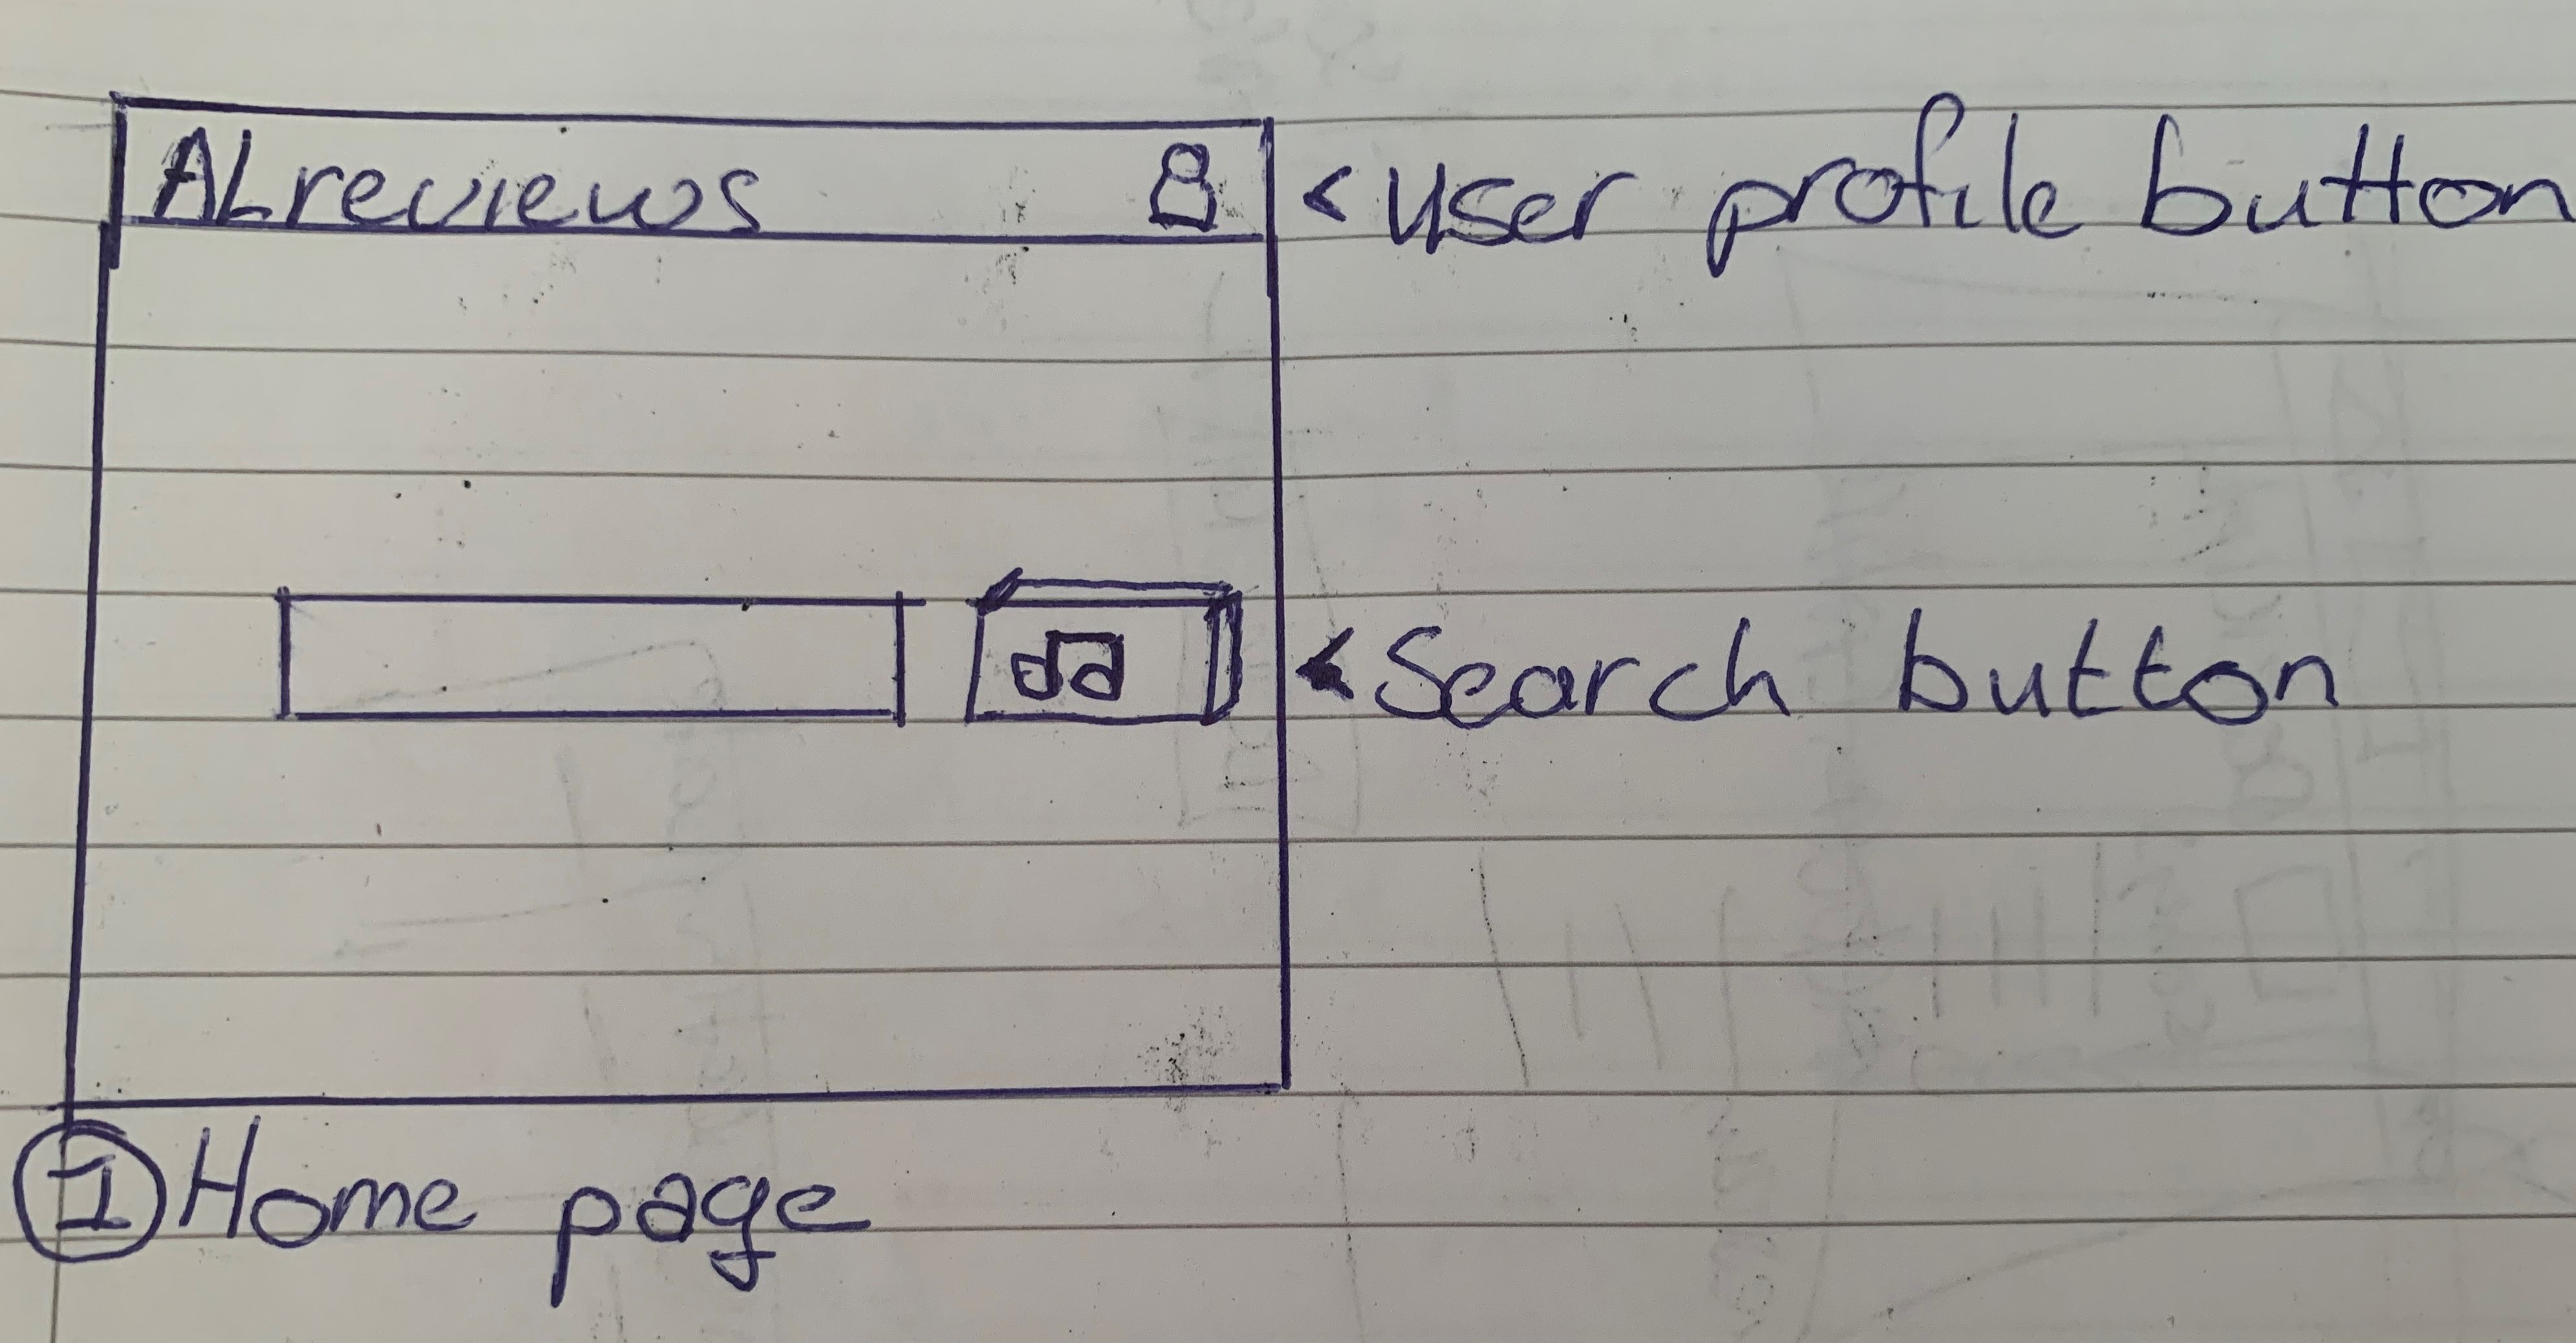 ALreviews
< user profile button
< Search button
1 Home page